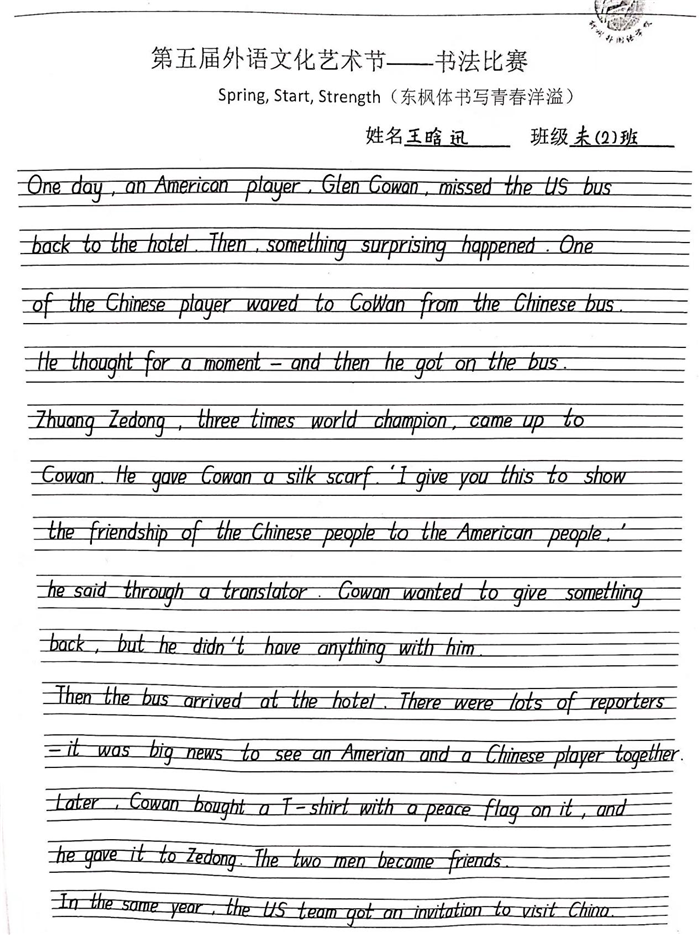 第五届外语文化艺术节——书法比赛
Spring, Start, Strength（东枫体书写青春洋溢）
姓名王晗讯 班级未(2)班
One day, an American player, Glen Cowan, missed the US bus
back to the hotel. Then, something surprising happened. One
of the Chinese player waved to CoWan from the Chinese bus.
He thought for a moment – and then he got on the bus.
Zhuang Zedong, three times world champion, came up to
Cowan. He gave Cowan a silk scarf. 'I give you this to show
the friendship of the Chinese people to the American people,'
he said through a translator. Cowan wanted to give something
back, but he didn't have anything with him.
Then the bus arrived at the hotel. There were lots of reporters
– it was big news to see an Amerian and a Chinese player together.
Later, Cowan bought a T-shirt with a peace flag on it, and
he gave it to Zedong. The two men become friends.
In the same year, the US team got an invitation to visit China.